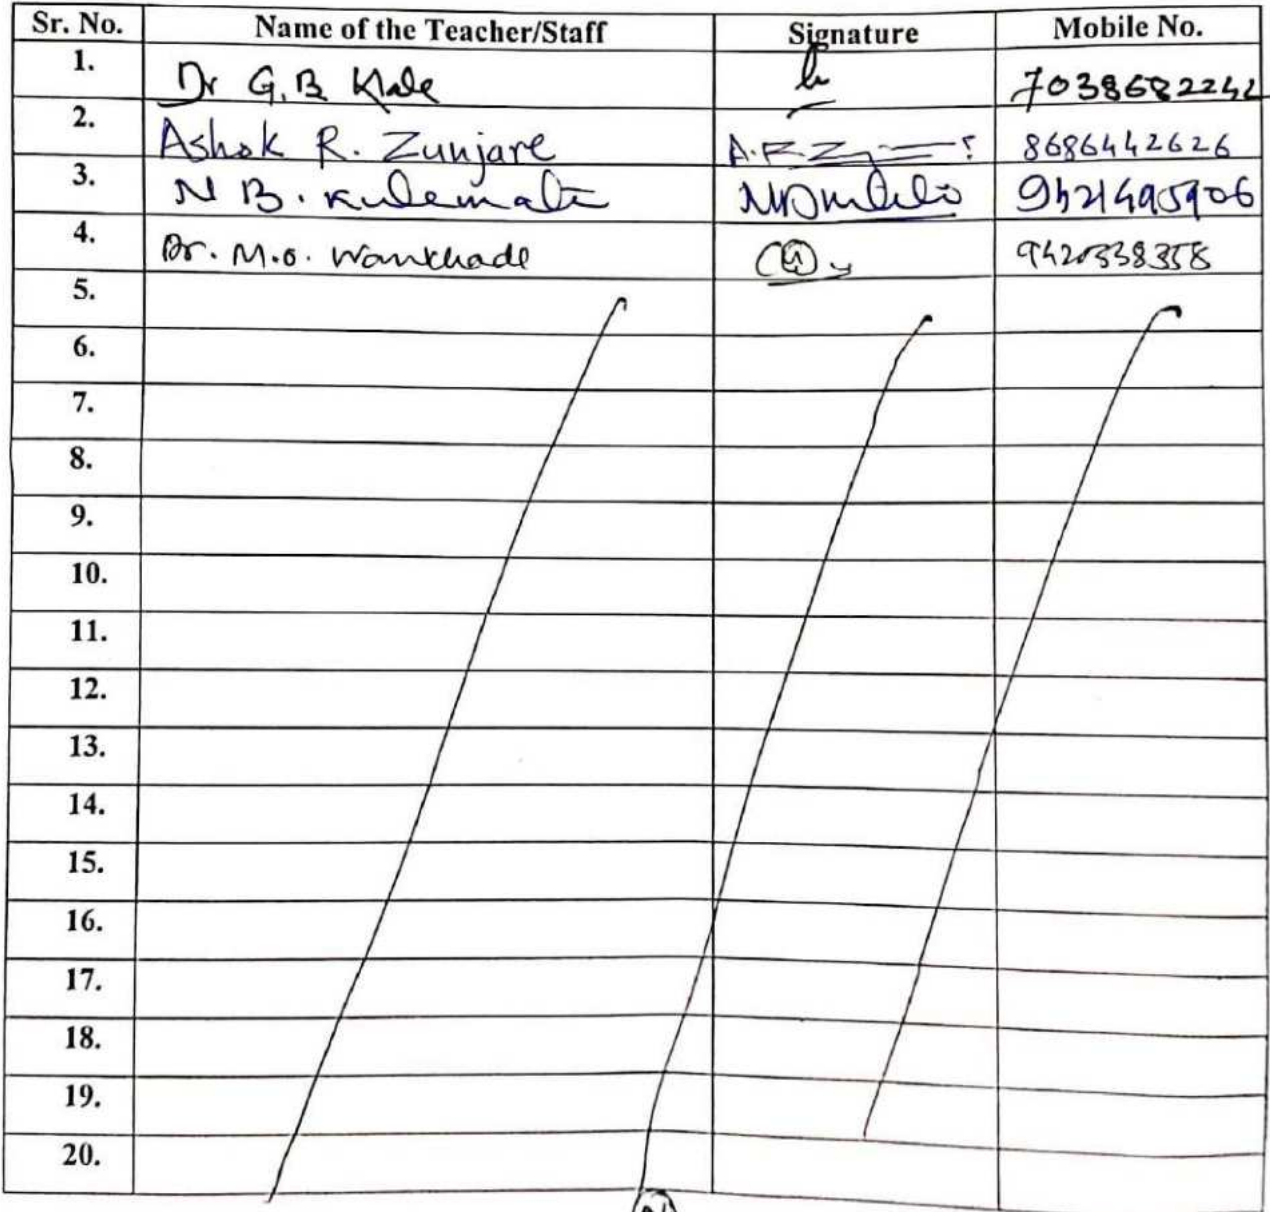 Sr. No. Name of the Teacher/Staff Signature Mobile No.
1. Dr G.B. Kale 7038682242
2. Ashok R. Zunjare A.R.Z 8686442626
3. N B.
4. Dr. M.O. Wankhade 9420338358
5.
6.
7.
8.
9.
10.
11.
12.
13.
14.
15.
16.
17.
18.
19.
20.